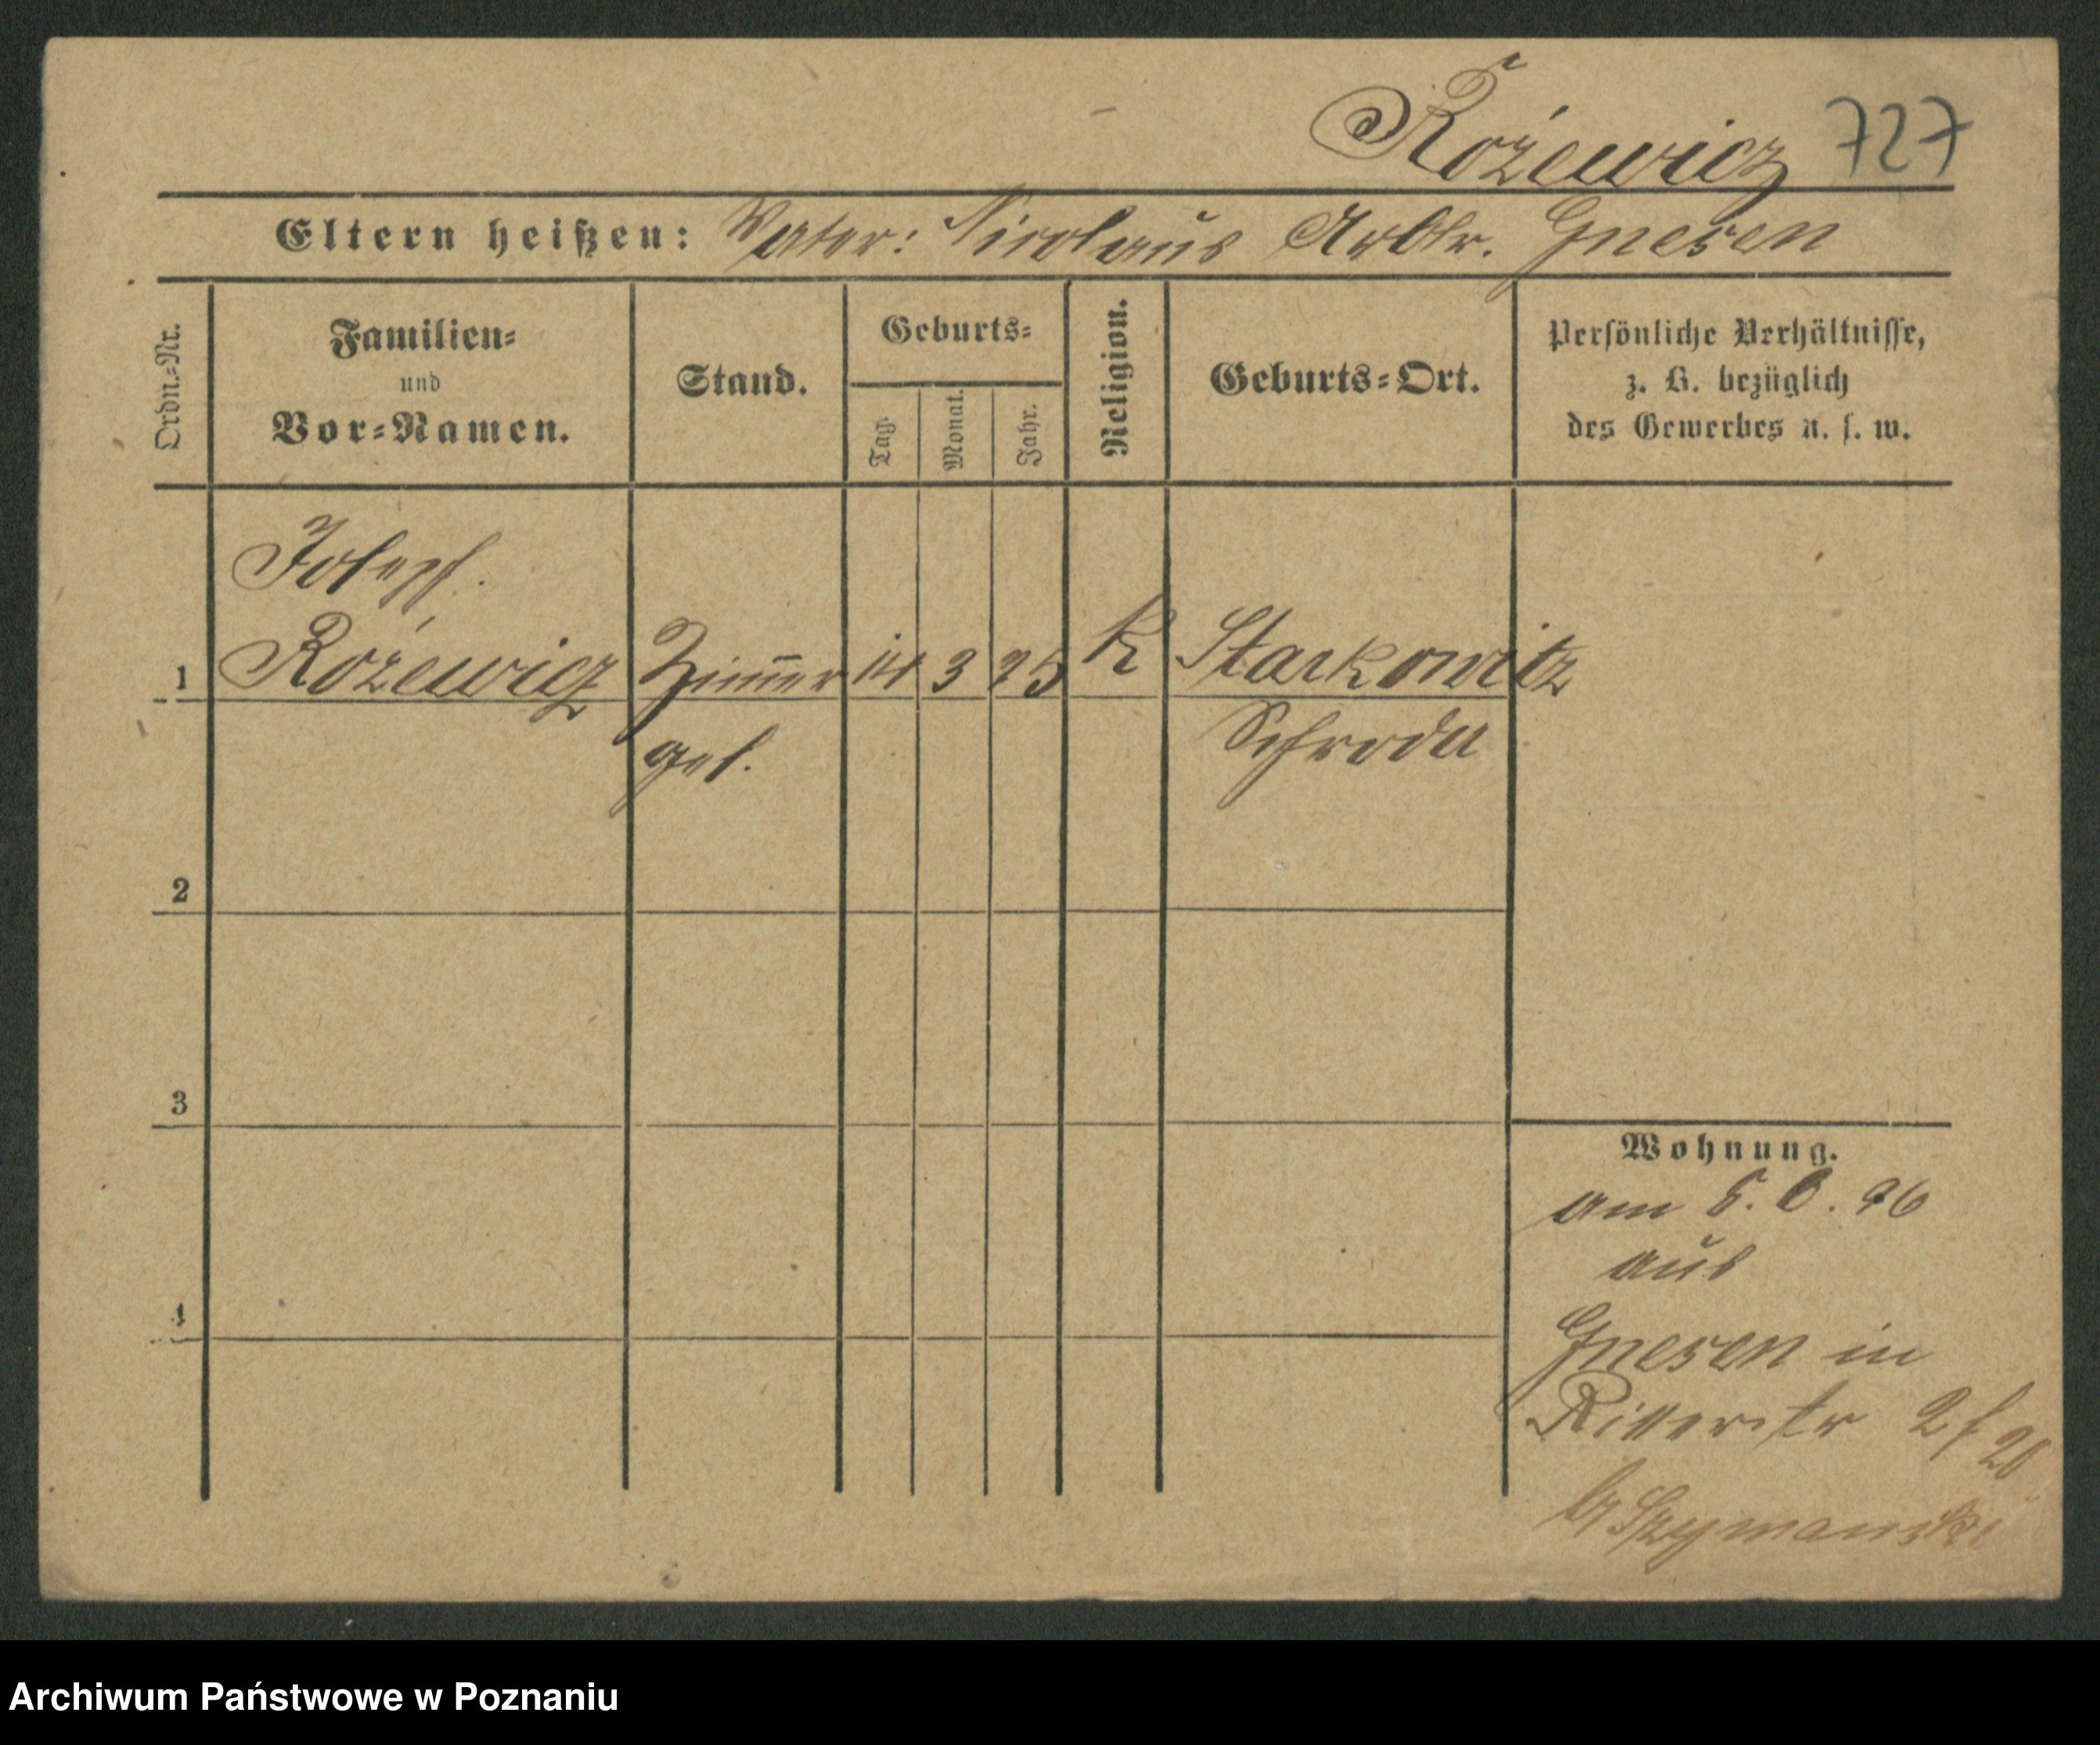 Rożewicz 727
Eltern heißen: Vater: Nicolaus Arbtr. Gnesen
Ordn.-Nr.
Familien-
und
Vor-Namen.
Stand.
Geburts-
Tag.
Monat.
Jahr.
Religion.
Geburts-Ort.
Persönliche Verhältnisse,
z. B. bezüglich
des Gewerbes u. s. w.
Joseph.
1 Rożewicz Zimmer 14 3 75 K Starkowitz
ges. Schroda
2
3
4
Wohnung.
am 5. 6. 96
aus
Gnesen in
Ritterstr 2
b/ Szymanski
Archiwum Państwowe w Poznaniu